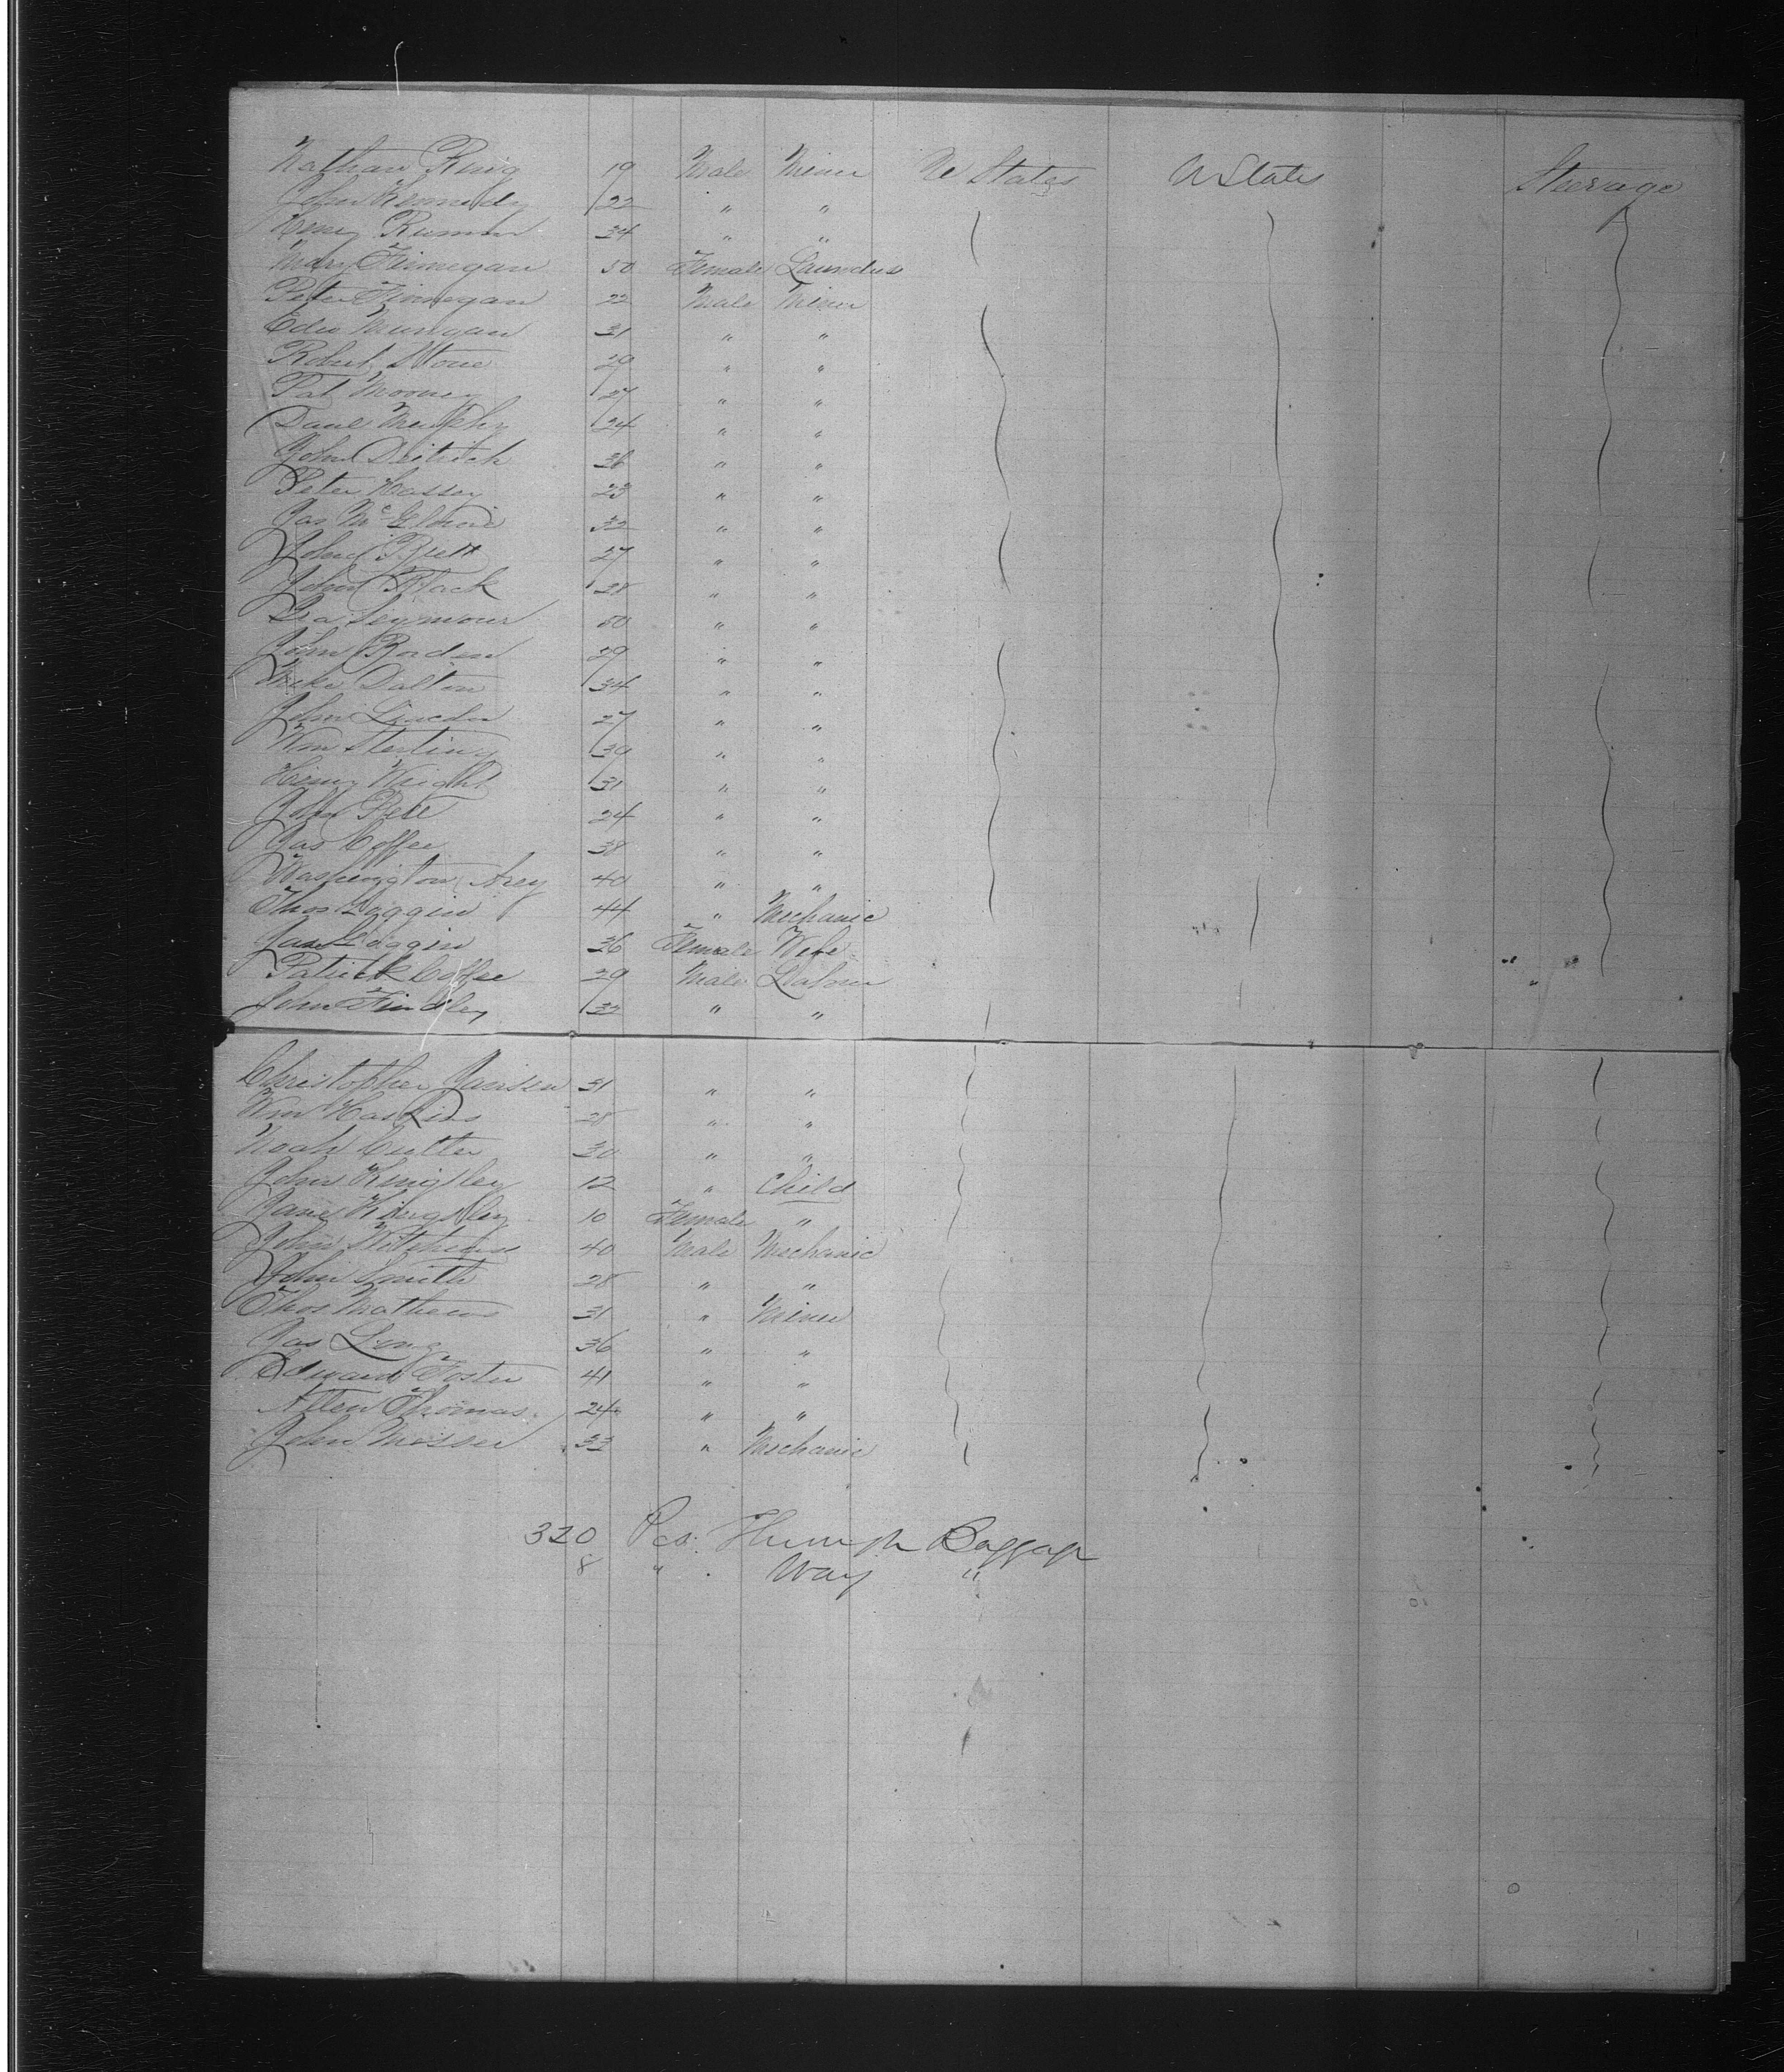 Nathan King 19 Male Miner U States U States Steerage
John Kennedy 22 " "
Henry 24 " "
Mary Finnegan 50 Female Laundress
Peter Finnegan 22 Male Miner
Edw 31 " "
Robert Stone 29 " "
Pat Mooney 27 " "
Danl Murphy 24 " "
John 26 " "
Peter Hassey 23 " "
Jas 32 " "
John 27 " "
John Black 28 " "
Geo Seymour 50 " "
John Borden 29 " "
Mike Dalton 34 " "
John Lincoln 27 " "
Wm Sterling 39 " "
Henry Wright 31 " "
John 24 " "
Jas Coffee 38 " "
Washington Arey 40 " "
Thos Loggin 44 " Mechanic
Loggin 36 Female Wife
Patrick Coffee 29 Male Labour
John Findley 32 " "
Christopher Jansen 31 " "
Wm Haskins 28 " "
Noah Cutter 30 " "
John Kingsley 12 " Child
Jane Kingsley 10 Female "
John 40 Male Mechanic
John Smith 28 " "
Thos Mathews 31 " Miner
Jas Long 36 " "
Edward Foster 41 " "
Allen Thomas 24 " "
John Mosser 33 " Mechanic
320 Pcs. Through Baggage
8 " Way "